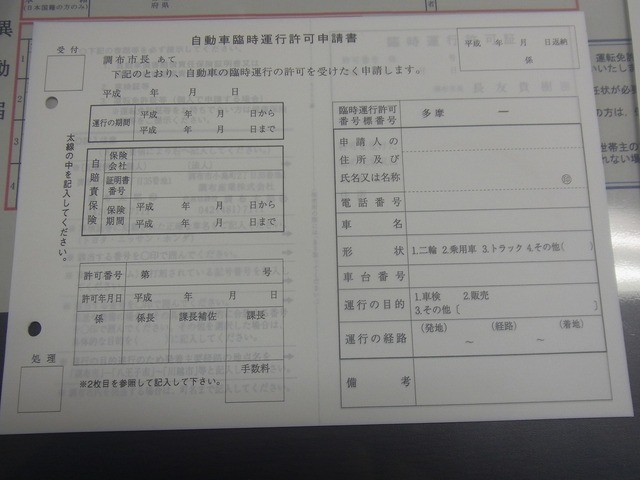 自動車臨時運行許可申請書
受付
調布市長 あて
下記のとおり、自動車の臨時運行の許可を受けたく申請します。
平成 年 月 日
運行の期間
平成 年 月 日から
平成 年 月 日まで
太線の中を記入してください。
自賠責保険
保険会社
証明書番号
保険期間
平成 年 月 日から
平成 年 月 日まで
許可番号 第 号
許可年月日 平成 年 月 日
係 係長 課長補佐 課長
手数料
処理
※2枚目を参照して記入して下さい。
平成 年 月 日返納
係
臨時運行許可番号標番号 多摩 ー
申請人の
住所及び
氏名又は名称
㊞
電話番号
車名
形状 1.二輪 2.乗用車 3.トラック 4.その他( )
車台番号
運行の目的 1.車検 2.販売
3.その他( )
運行の経路 (発地) (経路) (着地)
～ ～
備考
異動届
(日本国籍の方のみ)
府県